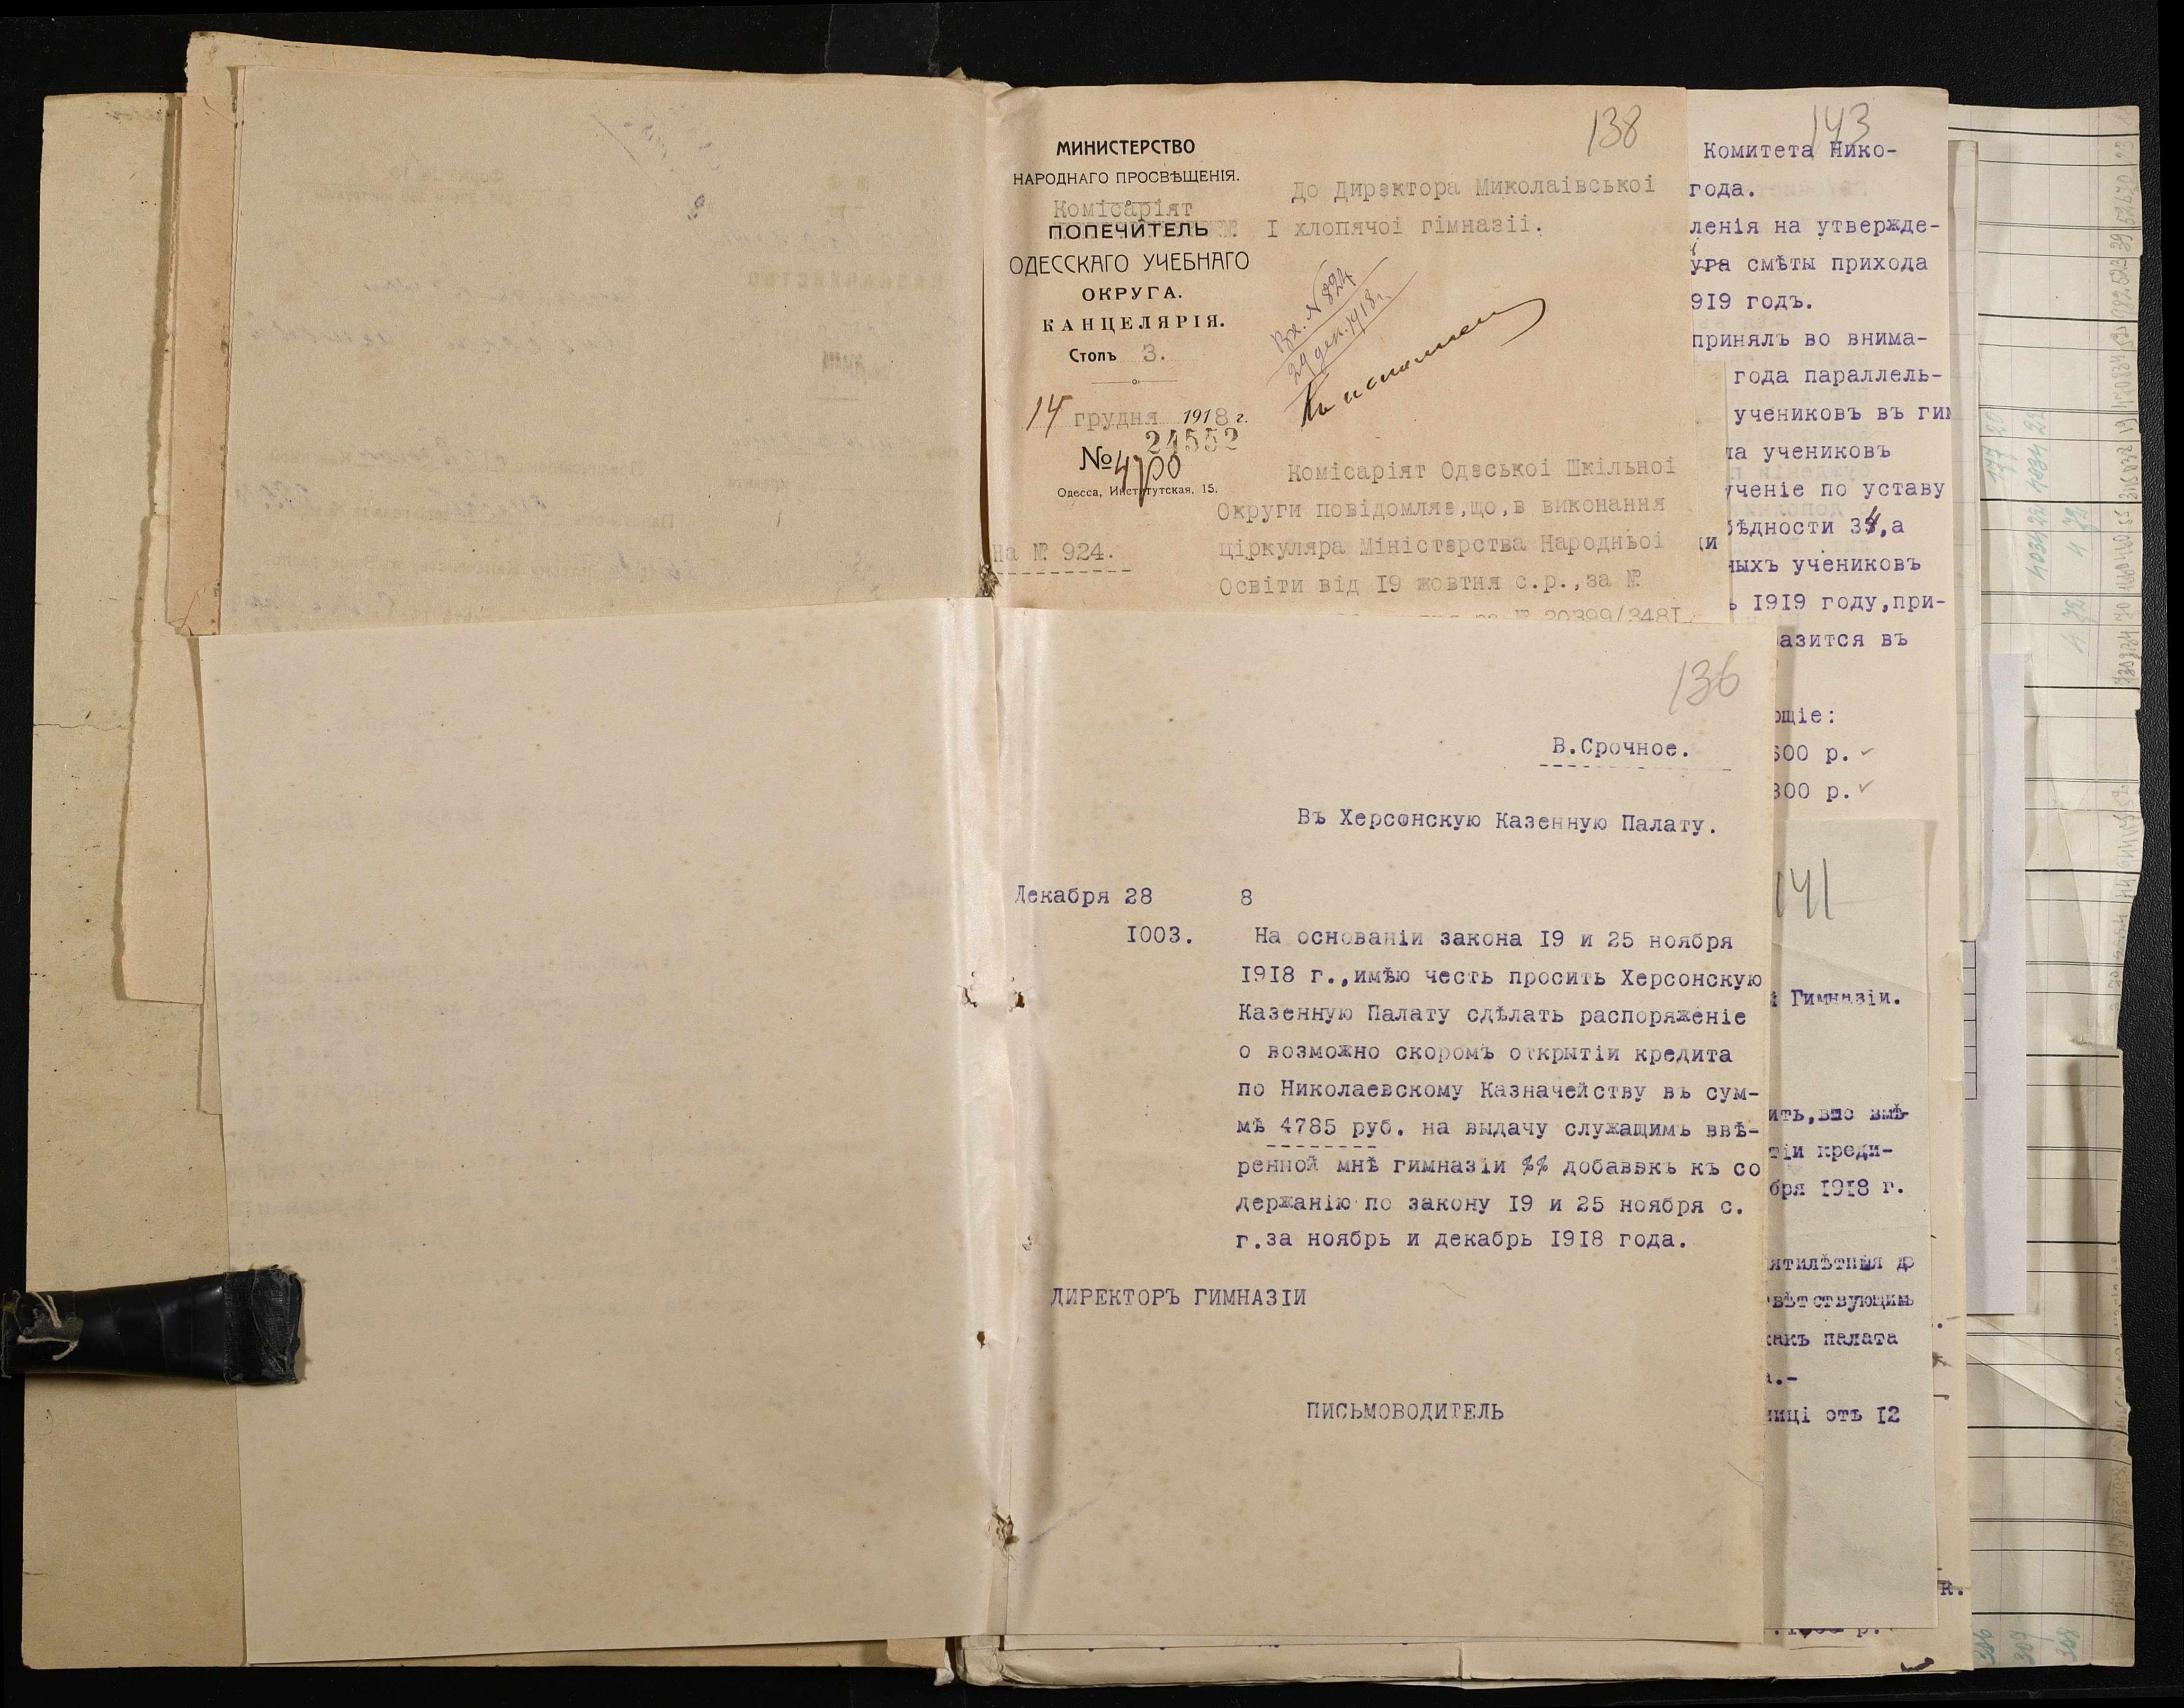 138
МИНИСТЕРСТВО
НАРОДНАГО ПРОСВѢЩЕНІЯ.
Комісаріят
ПОПЕЧИТЕЛЬ
ОДЕССКАГО УЧЕБНАГО
ОКРУГА.
КАНЦЕЛЯРІЯ.
Столъ 3.
14 грудня 1918 г.
24552
№ 4700
Одесса, Институтская, 15.
На № 924.
До Директора Миколаівськоі
I хлопячоі гімназіі.
Вх. N 824
29 дек. 1918 г.
Къ исполнен
Комісаріят Одеськоі Шкільноі
Округи повідомляє,що,в виконання
ціркуляра Міністерства Народньоі
Освіти від I9 жовтня с.р.,за №
за № 20399/348I
143
Комитета Нико-
года.
ленія на утвержде-
уга смѣты прихода
919 годъ.
принялъ во внима-
года параллель-
учениковъ въ гим
ла учениковъ
ученіе по уставу
бѣдности 34,а
ныхъ учениковъ
I9I9 году,при-
азится въ
ющіе:
600 р.
800 р.
136
В.Срочное.
Въ Херсонскую Казенную Палату.
Декабря 28 8
I003.
На основаніи закона I9 и 25 ноября
I9I8 г.,имѣю честь просить Херсонскую
Казенную Палату сдѣлать распоряженіе
о возможно скоромъ открытіи кредита
по Николаевскому Казначейству въ сум-
мѣ 4785 руб. на выдачу служащимъ ввѣ-
ренной мнѣ гимназіи %% добавокъ къ со
держанію по закону I9 и 25 ноября с.
г.за ноябрь и декабрь I9I8 года.
ДИРЕКТОРЪ ГИМНАЗІИ
ПИСЬМОВОДИТЕЛЬ
141
Гимназіи.
ить,что вмѣ-
тіи креди-
бря I9I8 г.
ятилѣтныя до
вѣтствующимъ
какъ палата
а.-
ниці отъ I2